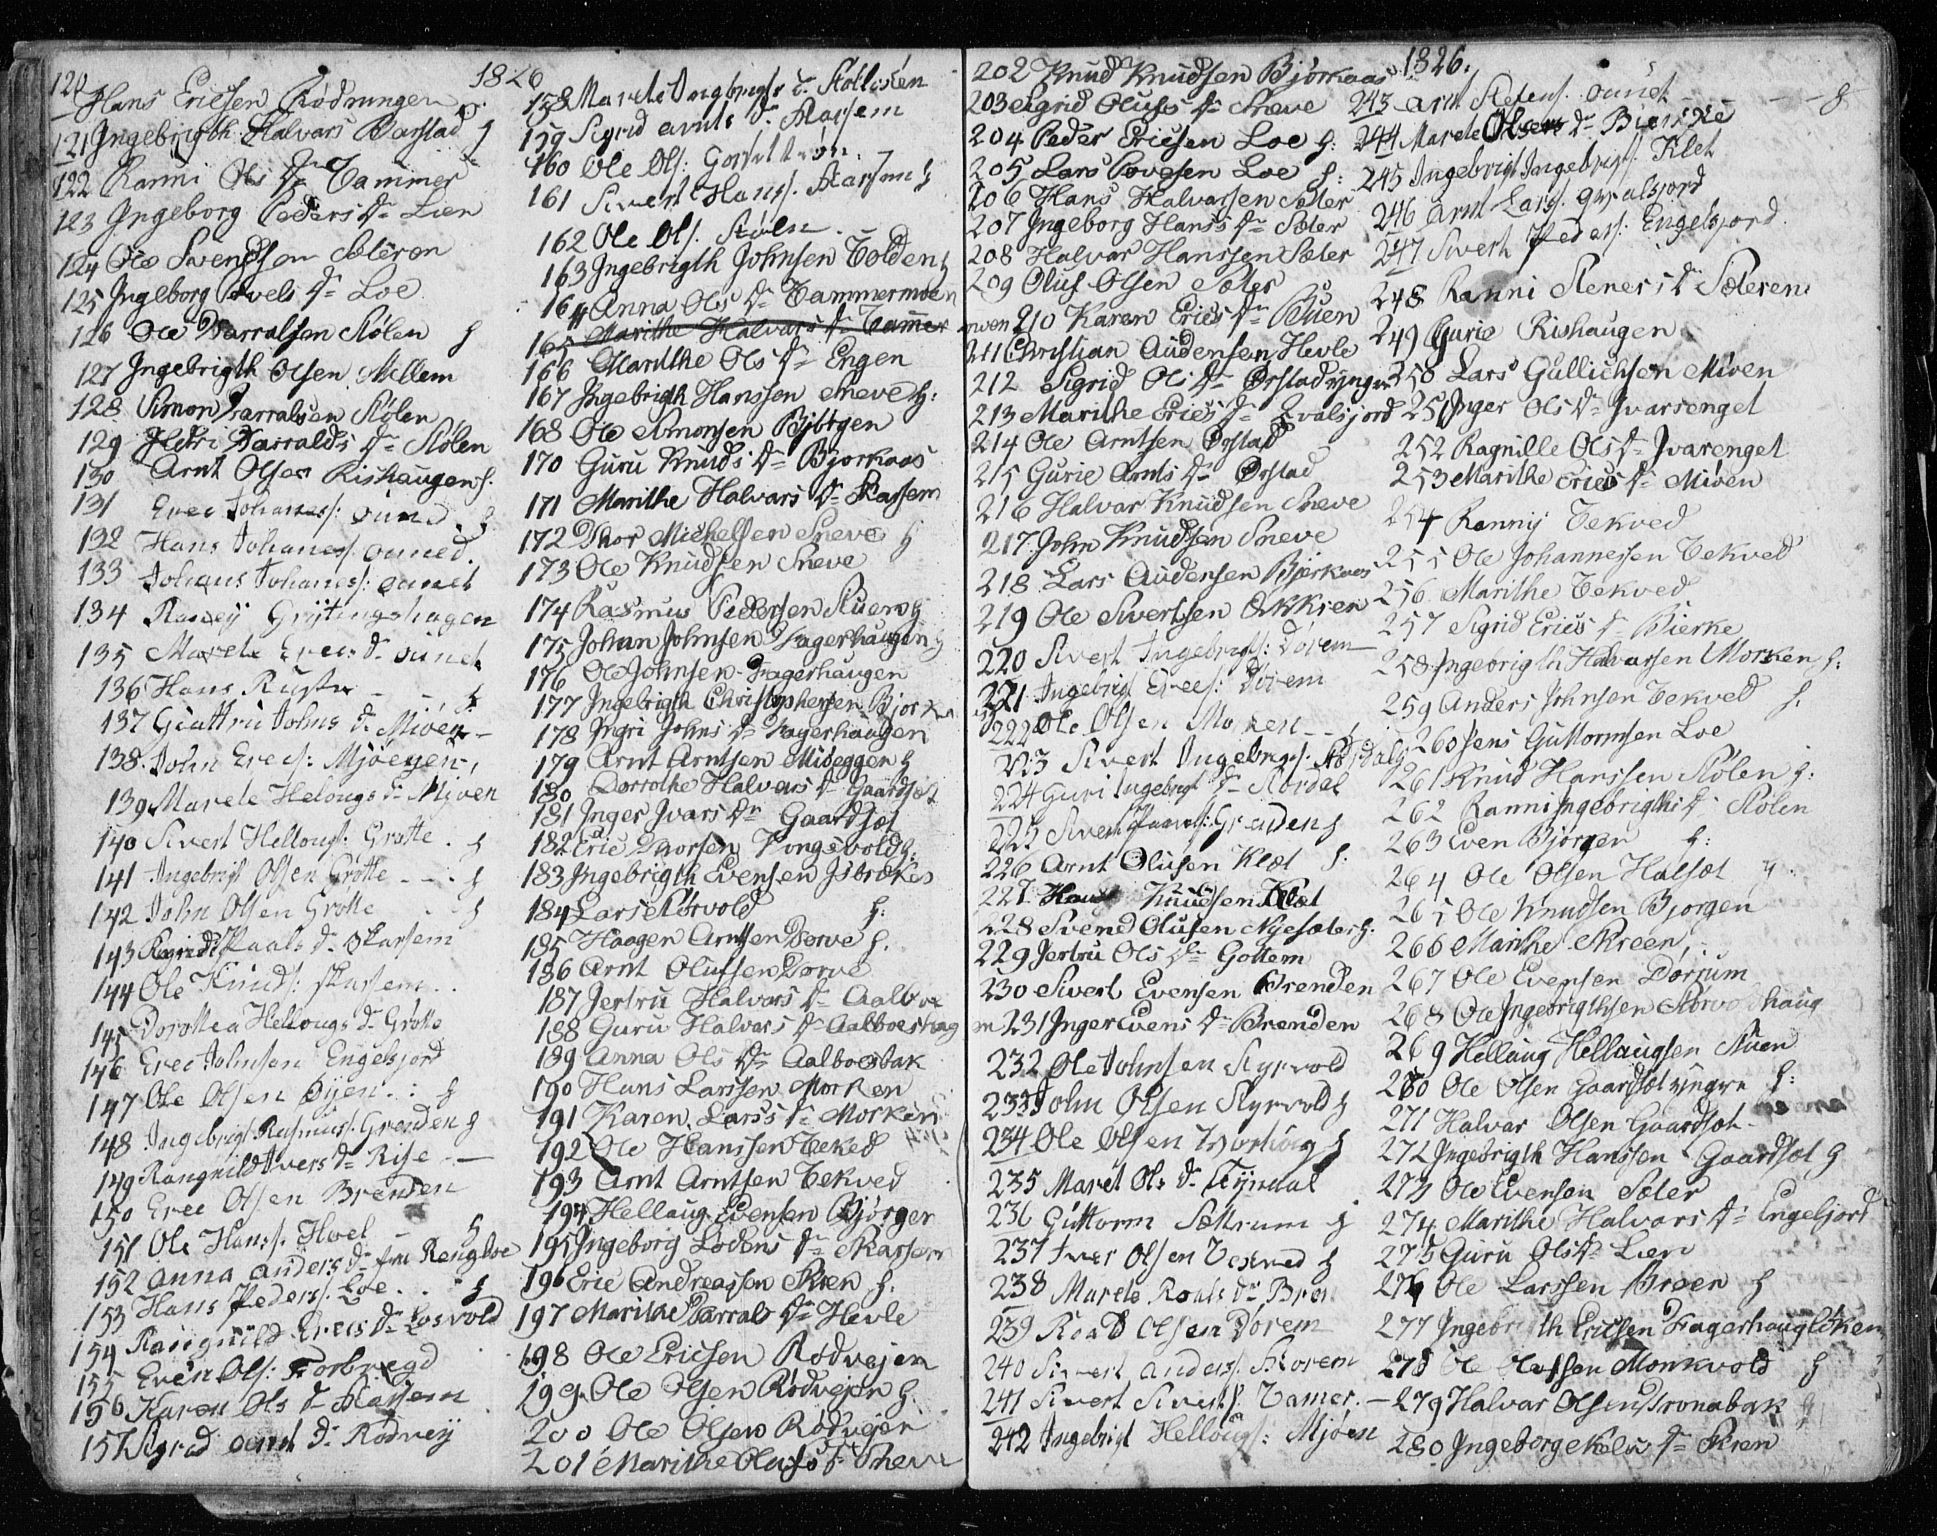 1826
120 Hans Ericsen Rødningen
121 Ingebrigth Halvars Barstad
122 Ranni Ols Dr Tammer
123 Ingeborg Peders Dr Lien
124 Ole Svendsen Sæteren
125 Ingeborg Povels Dr Loe
126 Ole Harralsen Stølen h
127 Ingebrigth Olsen Mellem
128 Simon Harralsen Stølen
129 Harralds Dr Stølen
130 Arnt Olsen Rishaugen h.
131 Eree Johanes:
132 Hans Johanes:
133 Johans Johanes:
134 Grytingshagen
135 Marete Erecs D.
136 Hans
137 Giætru Johns D. Miøen
138 John Erecs: Mjøeyen
139 Marete Helougs D. Mjøen
140 Sivert Hellougs: Grøtte h
141 Ingebrigt Olsen Grøtte h
142 John Olsen Grøtte h
143 Paals D. Skarsem
144 Ole Knuds:
145 Dorottea Hellougs D. Grøtte
146 Erec Johnsen Engelsjord
147 Ole Olsen Øyen h
148 Ingebrigt Rasmus: Grenden h
149 Rangnild Ivers D. Rise
150 Erec Olsen Brenden
151 Ole Hans: Hoel h
152 Anna Anders D.
153 Hans Peders: Loe h
154 Rangnild Erecs D.
155 Even Ols:
156 Karen Ols D.
157 Sigrid D. Rødvey
158 Marete Ingbrigts D.
159 Sigrid Arnts D.
160 Ole Ols:
161 Sivert Hans: h
162 Ole Ols: Stølen
163 Ingebrigth Johnsen Tolden h
164 Anna Ols Dr Tammermoen
165 Marithe Halvars Dr Tammer
166 Marithe Ols Dr Engen
167 Ingebrigth Hanssen Sneve h:
168 Ole Simonsen Bjørgen
170 Guru Knuds Dr Bjørkaas
171 Marithe Halvars Dr Skarsem
172 Thor Michelsen Sneve h
173 Ole Knudsen Sneve
174 Rasmus Pedersen Stuen h
175 Johan Johnsen Fagerhaugen h
176 Ole Johnsen Fagerhaugen
177 Ingebrigth Christophersen
178 Ingri Johns Dr Fagerhaugen
179 Arnt Arntsen Mideggen h
180 Dorrothe Halvars Dr Gaardsæt
181 Inger Ivars Dr Gaardsæt
182 Eric Thorsen Vongsvold h.
183 Ingebrigth Evensen
184 Lars Størvold h:
185 Haagen Arntsen Dorve h.
186 Arnt Olufsen Dorve
187 Jertru Halvars Dr Aalboe
188 Guru Halvars Dr Aalboeshagen
189 Anna Ols Dr Aalboesbak
190 Hans Larssen Morken
191 Karen Lars's Dr Morken
192 Ole Hanssen Tekved
193 Arnt Arntsen Tekved
194 Hellaug Evensen Bjørgen
195 Ingeborg Lodens Dr Skarsem
196 Eric Andreassen Skren h.
197 Marithe Harrals Dr Hevle
198 Ole Ericsen Rødvejen
199 Ole Olsen Rødvejen h.
200 Ole Olsen Rødvejen
201 Marithe Olufs Dr Sneve
1826.
202 Knud Knudsen Bjørkaas
203 Sigrid Olufs Dr Sneve
204 Peder Ericsen Loe h:
205 Lars Povelsen Loe h:
206 Hans Halvarsen Sæter
207 Ingeborg Hans's Dr Sæter
208 Halvar Hanssen Sæter
209 Oluf Olsen Sæter
210 Karen Erics Dr Buen
211 Christian Audensen Hevle
212 Sigrid Ols Dr Ørstad yngre
213 Marithe Erics Dr Qvalsjord
214 Ole Arntsen Ørstad
215 Gurie Arnts Dr Ørstad
216 Halvor Knudsen Sneve
217 John Knudsen Sneve
218 Lars Audensen Bjørkaas
219 Ole Sivertsen
220 Sivert Ingebrigts: Dørem
221 Ingebrigt Erecs: Dørem
222 Ole Olsen Morken
223 Sivert Ingebrigts:
224 Guri Ingebrigt D. Nordal
225 Grenden h
226 Arnt Olufsen Klæt h:
227 Knudsen Klæt
228 Svend Olufsen Nyesæter h.
229 Jertru Ols Dr Gottem
230 Sivert Evensen Brenden
231 Inger Evens Dr Brenden
232 Ole Johnsen Styrvold
233 John Olsen Styrvold h
234 Ole Olsen h
235 Maret Ols D.
236 Guttorm Sættrum h
237 Iver Olsen Tekved h
238 Marete Roals Dr
239 Roald Olsen Dørem
240 Sivert Anders:
241 Sivert Siverts: Tamer.
242 Ingebrigt Hellougs: Mjøen
243 Arnt Stefens: 8
244 Marete Olsens Dr Bierke
245 Ingebrigt Ingebrigts: Klet
246 Arnt Lars: Qvalsjord
247 Sivert Peders: Engelsjord
248 Ranni Steners Dr Sæteren
249 Gurie Rishaugen
250 Lars Gullichsen Miøen
251 Inger Ols Dr Ivarsenget
252 Ragnille Ols Dr Ivarenget
253 Marithe Erics Dr Miøen
254 Ranny Tekved
255 Ole Johannessen Tekved
256 Marithe Tekved
257 Sigrid Erics Dr Bierke
258 Ingebrigth Halvarsen Morken h:
259 Anders Johnsen Tekved h.
260 Jens Guttormsen Loe
261 Knud Hanssen Stølen h:
262 Ranni Ingebrigths Dr Stølen
263 Even Bjørgen h:
264 Ole Olsen Halsæt h
265 Ole Knudsen Bjørgen
266 Marithe Skreen
267 Ole Evensen Dørjum
268 Ole Ingebrigthsen Størvoldhaug
269 Hellaug Hellaugsen Stuen
260 Ole Olsen Gaardsæt yngre h:
271 Halvar Olsen Gaardsæt
272 Ingebrigth Hanssen Gaardsæt h
273 Ole Evensen Sæter
274 Marithe Halvars Dr Engelsjord
275 Guru Ols Dr Lien
276 Ole Larssen Broen h
277 Ingebrigth Ericsen Fagerhaugløken
278 Ole Olessen Monkvold h
279 Halvar Olsen h
280 Ingeborg Dr Skren